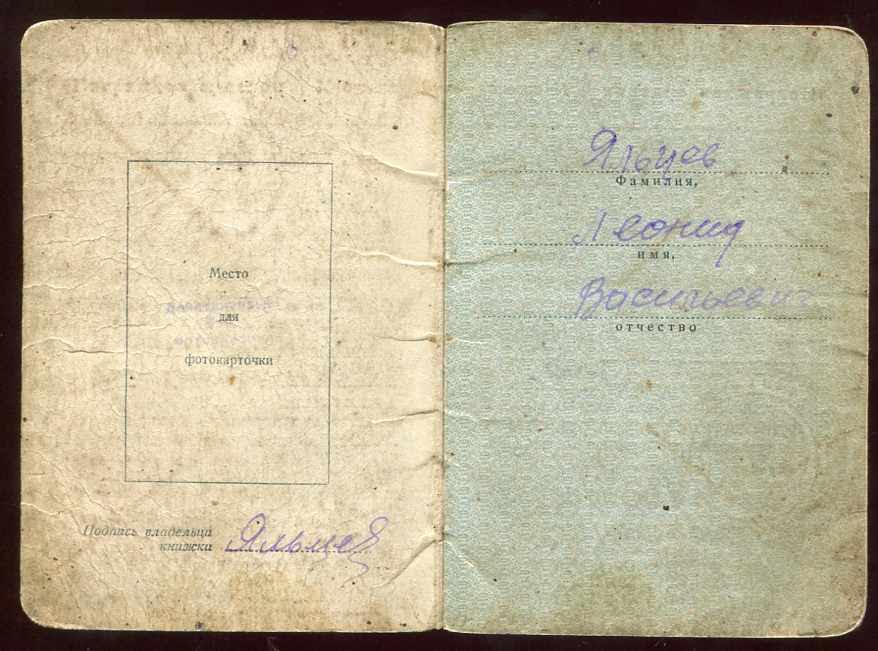 Место
для
фотокарточки
Подпись владельца
книжки
Яльцев
Яльцев
Фамилия,
Леонид
имя,
Васильевич
отчество